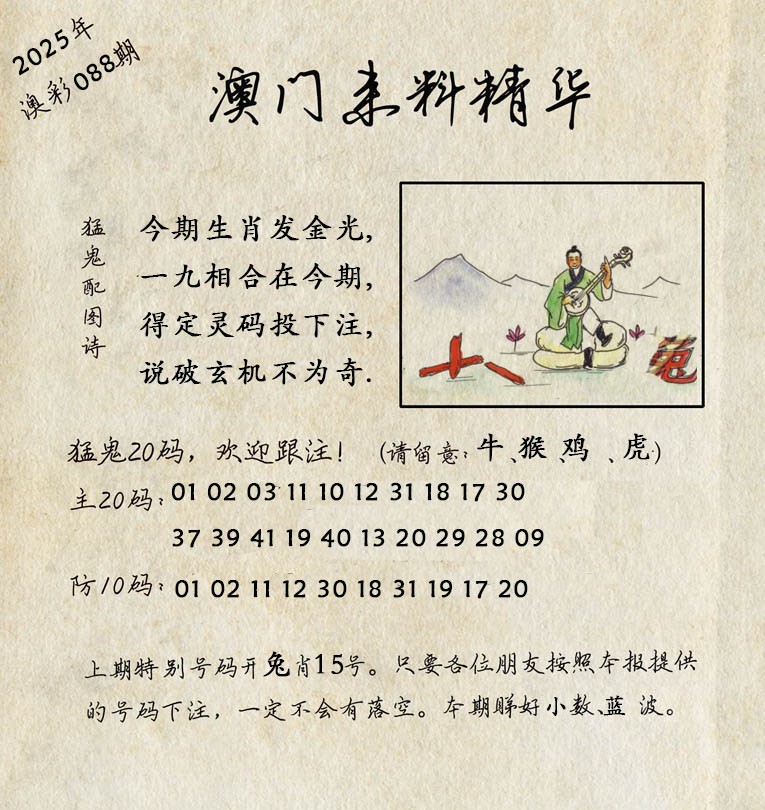 2025年
澳彩088期
澳门来料精华
猛鬼配图诗
今期生肖发金光,
一九相合在今期,
得定灵码投下注,
说破玄机不为奇.
十八
兔
猛鬼20码，欢迎跟注！（请留意：牛、猴、鸡、虎）
主20码：01 02 03 11 10 12 31 18 17 30
37 39 41 19 40 13 20 29 28 09
防10码：01 02 11 12 30 18 31 19 17 20
上期特别号码开兔肖15号。只要各位朋友按照本报提供
的号码下注，一定不会有落空。本期睇好小数、蓝 波。